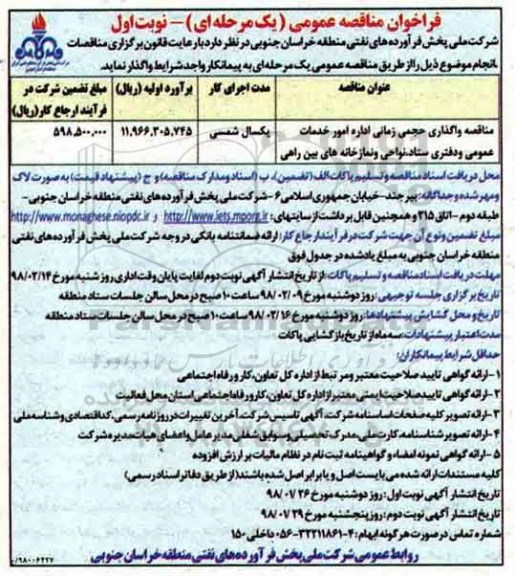 فراخوان مناقصه عمومی (یک مرحله ای) – نوبت اول
شرکت ملی پخش فرآورده های نفتی منطقه خراسان جنوبی در نظر دارد با رعایت قانون برگزاری مناقصات
انجام موضوع ذیل را از طریق مناقصه عمومی یک مرحله ای به پیمانکار واجد شرایط واگذار نماید.
عنوان مناقصه
مدت اجرای کار
برآورد اولیه (ریال)
مبلغ تضمین شرکت در فرآیند ارجاع کار (ریال)
مناقصه واگذاری حجمی زمانی اداره امور خدمات عمومی و دفتری ستاد، نواحی و نمازخانه های بین راهی
یکسال شمسی
۱۱,۹۶۶,۳۰۵,۷۴۵
۵۹۸,۵۰۰,۰۰۰
محل دریافت اسناد مناقصه و تسلیم پاکات الف (تضمین)، ب (اسناد و مدارک مناقصه) و ج (پیشنهاد قیمت) به صورت لاک
و مهر شده و جداگانه: بیرجند – خیابان جمهوری اسلامی ۶ – شرکت ملی پخش فرآورده های نفتی منطقه خراسان جنوبی –
طبقه دوم – اتاق ۲۱۵ و همچنین قابل برداشت از سایتهای: http://www.iets.mporg.ir و http://www.monaghese.niopdc.ir
مبلغ تضمین و نوع آن جهت شرکت در فرآیند ارجاع کار: ارائه ضمانتنامه بانکی در وجه شرکت ملی پخش فرآورده های نفتی
منطقه خراسان جنوبی به مبلغ یاد شده در جدول فوق
مهلت دریافت اسناد مناقصه و تسلیم پاکات: از تاریخ انتشار آگهی نوبت دوم لغایت پایان وقت اداری روز شنبه مورخ ۹۸/۰۲/۱۴
تاریخ برگزاری جلسه توجیهی: روز دوشنبه مورخ ۹۸/۰۲/۰۹ ساعت ۱۰ صبح در محل سالن جلسات ستاد منطقه
تاریخ و محل گشایش پیشنهادها: روز دوشنبه مورخ ۹۸/۰۲/۱۶ ساعت ۱۰ صبح در محل سالن جلسات ستاد منطقه
مدت اعتبار پیشنهادات: سه ماه از تاریخ بازگشایی پاکات
حداقل شرایط پیمانکاران:
۱ – ارائه گواهی تایید صلاحیت معتبر و مرتبط از اداره کل تعاون، کار و رفاه اجتماعی
۲ – ارائه گواهی تایید صلاحیت ایمنی معتبر از اداره کل تعاون، کار و رفاه اجتماعی استان محل فعالیت
۳ – ارائه تصویر کلیه صفحات اساسنامه شرکت، آگهی تاسیس شرکت، آخرین تغییرات در روزنامه رسمی، کد اقتصادی و شناسه ملی
۴ – ارائه تصویر شناسنامه، کارت ملی، مدرک تحصیلی و سوابق شغلی مدیرعامل و اعضای هیات مدیره شرکت
۵ – ارائه گواهی نمونه امضاء و گواهینامه ثبت نام در نظام مالیات بر ارزش افزوده
کلیه مستندات ارائه شده می بایست اصل و یا برابر اصل شده باشند (از طریق دفاتر اسناد رسمی)
تاریخ انتشار آگهی نوبت اول: روز دوشنبه مورخ ۹۸/۰۷/۲۶
تاریخ انتشار آگهی نوبت دوم: روز پنجشنبه مورخ ۹۸/۰۷/۲۹
شماره تماس در صورت هر گونه ابهام: ۴-۰۵۶-۳۲۲۱۱۸۶۱ داخلی ۱۵۰
روابط عمومی شرکت ملی پخش فرآورده های نفتی منطقه خراسان جنوبی
/۹۸۰۰۶۲۲۷